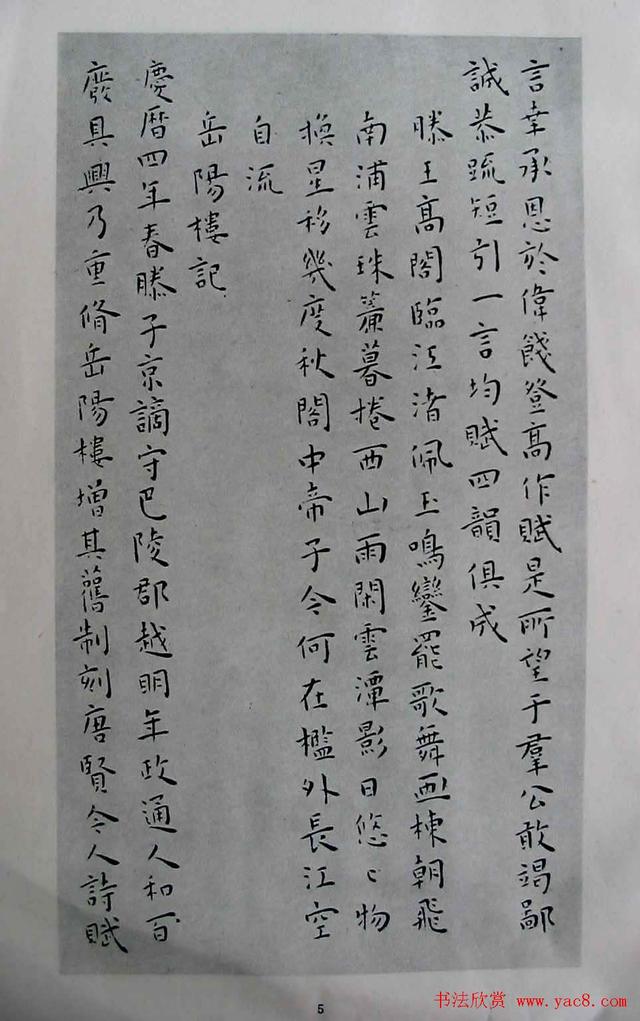 言幸承恩於偉餞登高作賦是所望于羣公敢竭鄙
誠恭疏短引一言均賦四韻俱成
滕王高閣臨江渚佩玉鳴鑾罷歌舞画棟朝飛
南浦雲珠簾暮捲西山雨閑雲潭影日悠〻物
換星移幾度秋閣中帝子今何在檻外長江空
自流
岳陽樓記
慶曆四年春滕子京謫守巴陵郡越明年政通人和百
廢具興乃重脩岳陽樓增其舊制刻唐賢今人詩賦
5
书法欣赏
www.yac8.com